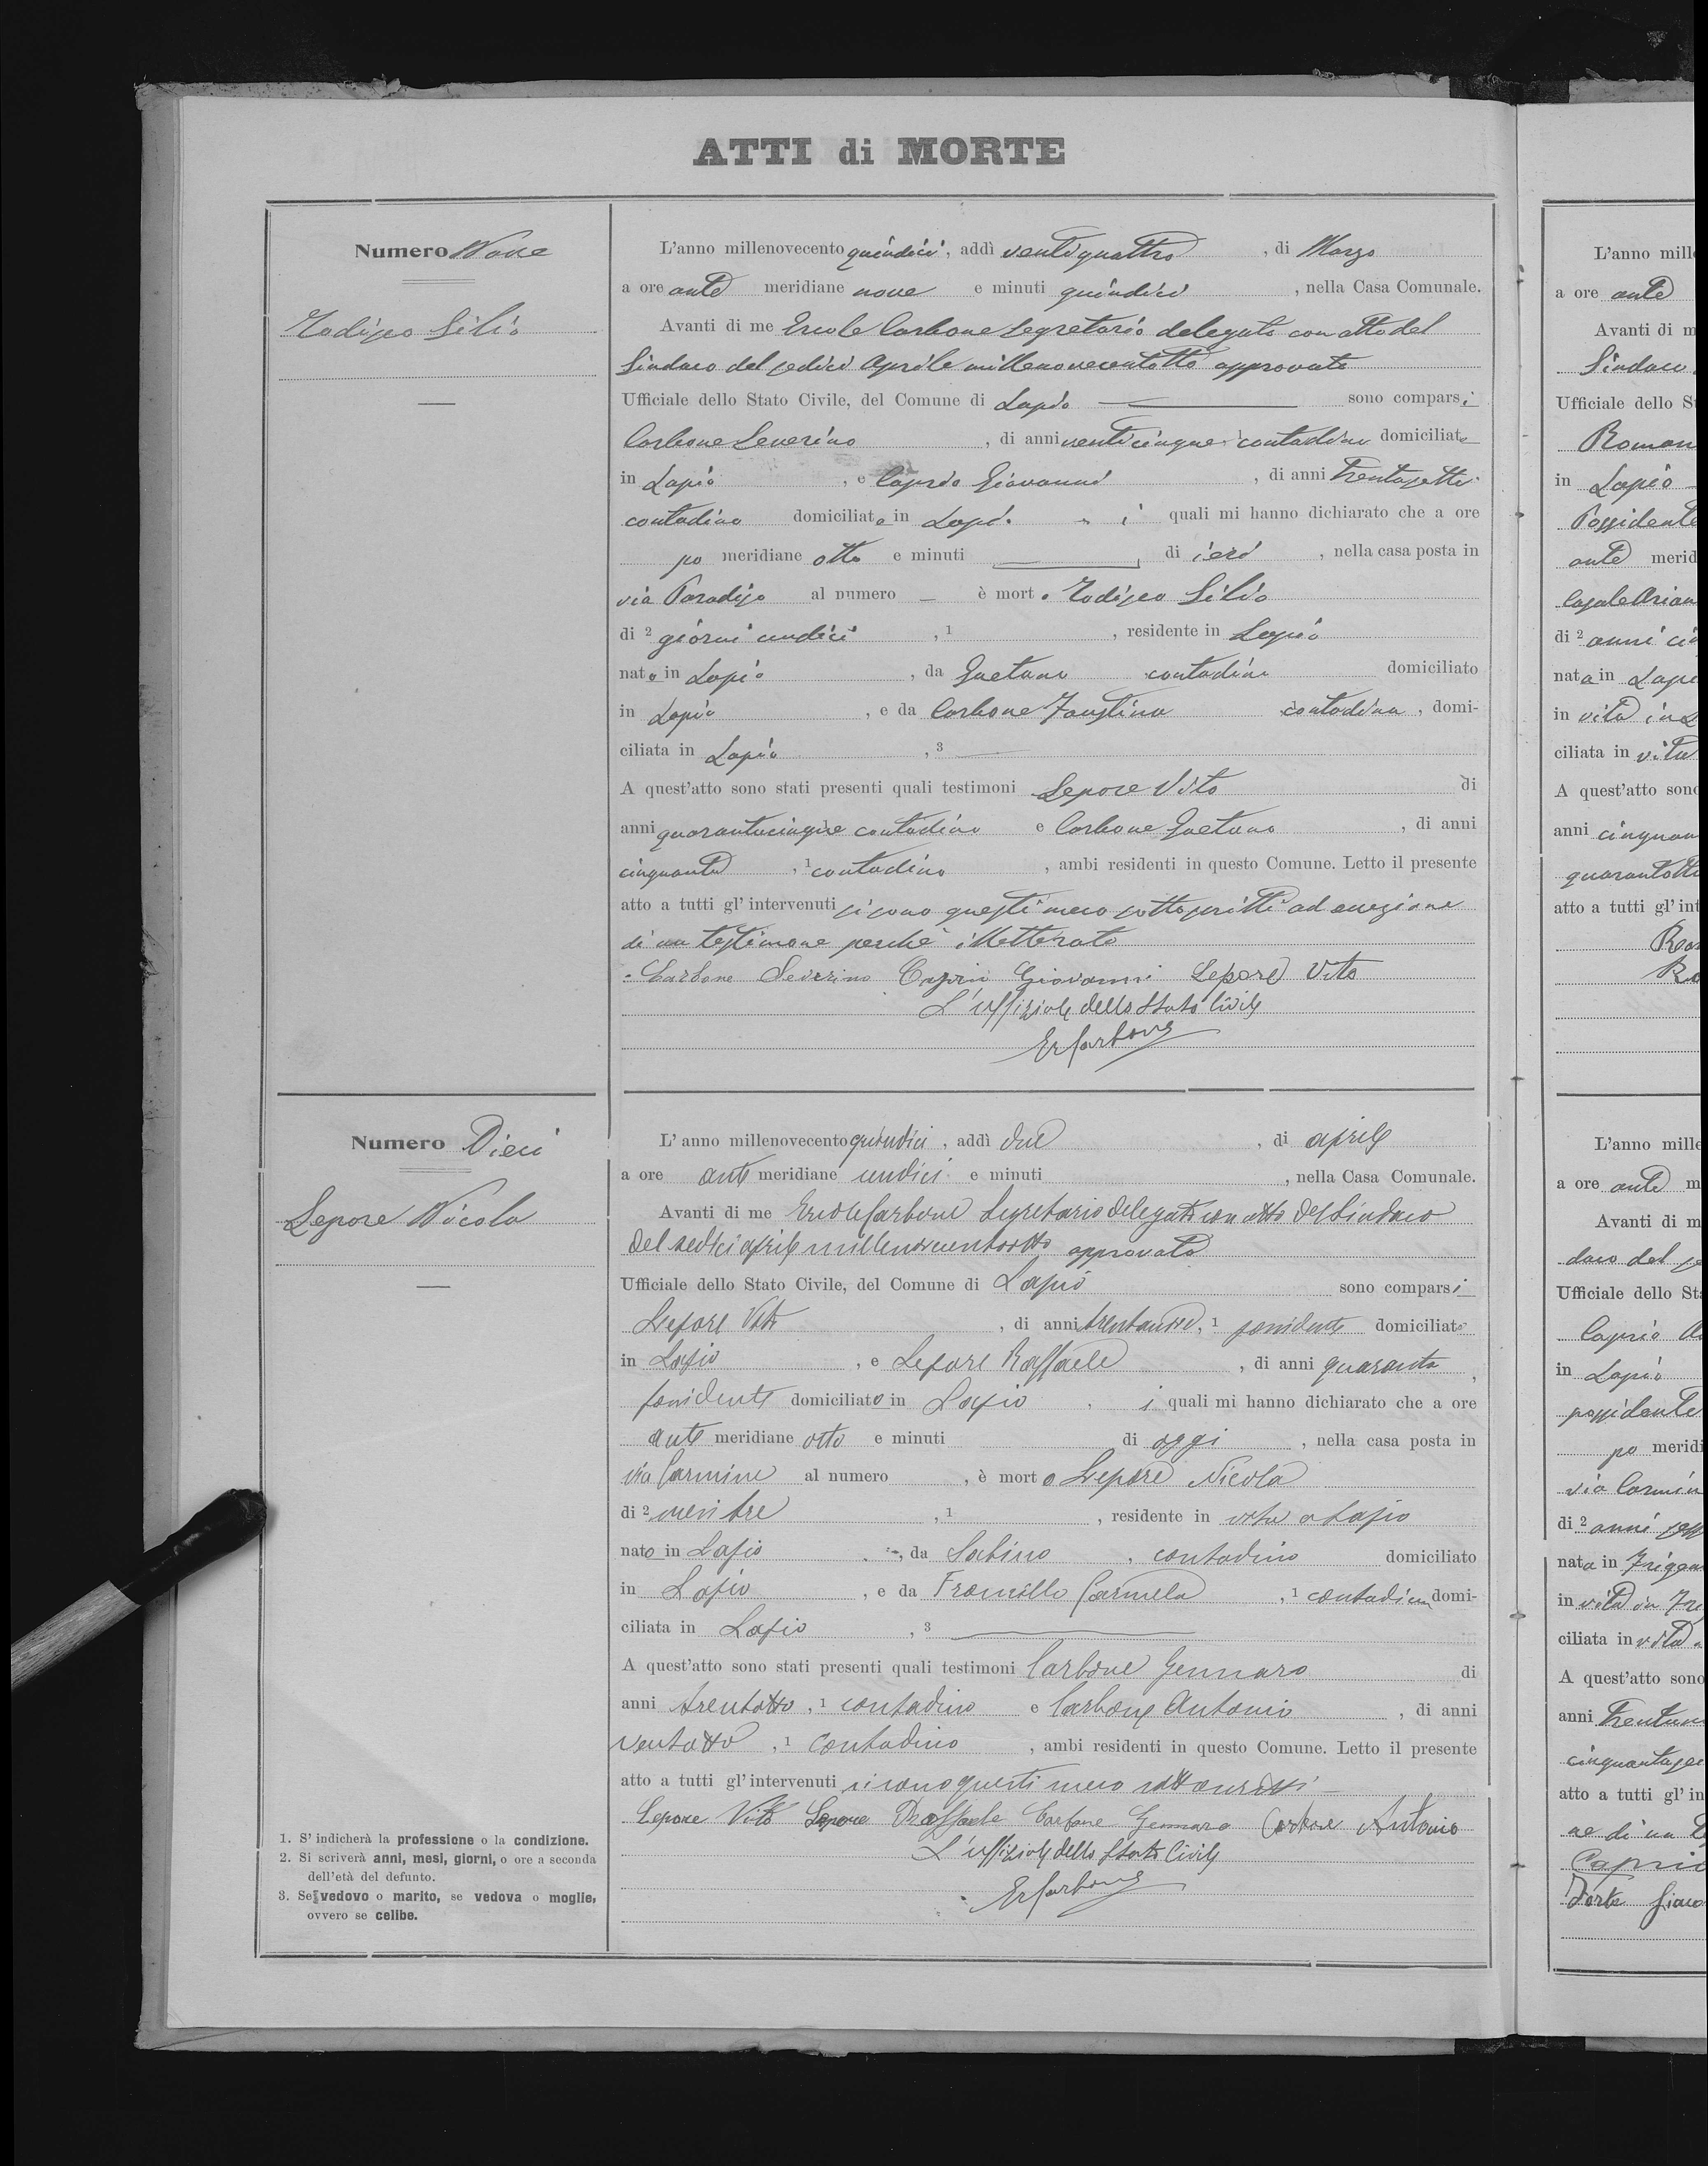 ATTI di MORTE
Numero Nove
Rodisco Silio
L'anno millenovecento quindici, addì ventiquattro, di Marzo
a ore ante meridiane nove e minuti quindici, nella Casa Comunale.
Avanti di me Ercole Carbone Segretario delegato con atto del
Sindaco del sedici Aprile millenovecentotto approvato
Ufficiale dello Stato Civile, del Comune di Lapio sono comparsi
Carbone Severino, di anni venticinque, 1 contadino domiciliato
in Lapio, e Caprio Giovanni, di anni trentasette
contadino domiciliato in Lapio i quali mi hanno dichiarato che a ore
po meridiane otto e minuti — di ieri, nella casa posta in
via Paradiso al numero — è morto Rodisco Silio
di 2 giorni undici, 1, residente in Lapio
nato in Lapio, da Gaetano contadino domiciliato
in Lapio, e da Carbone Faustina contadina, domi-
ciliata in Lapio, 3 —
A quest'atto sono stati presenti quali testimoni Lepore Vito di
anni quarantacinque contadino e Carbone Gaetano, di anni
cinquanta, 1 contadino, ambi residenti in questo Comune. Letto il presente
atto a tutti gl'intervenuti si sono questi meco sottoscritti ad eccezione
di un testimone perchè illetterato
Carbone Severino Caprio Giovanni Lepore Vito
L'uffiziale dello Stato Civile
ErCarbone
Numero Dieci
Lepore Nicola
L'anno millenovecento quindici, addì due, di aprile
a ore ante meridiane undici e minuti, nella Casa Comunale.
Avanti di me Ercole Carbone Segretario delegato con atto del Sindaco
del sedici aprile millenovecentootto approvato
Ufficiale dello Stato Civile, del Comune di Lapio sono comparsi
Lepore Vito, di anni, 1 possidente domiciliato
in Lapio, e Lepore Raffaele, di anni quaranta,
possidente domiciliato in Lapio, i quali mi hanno dichiarato che a ore
ante meridiane otto e minuti di oggi, nella casa posta in
via Carmine al numero, è morto Lepore Nicola
di 2 mesi tre, 1, residente in vita a Lapio
nato in Lapio, da Sabino, contadino domiciliato
in Lapio, e da Carmela, 1 contadina domi-
ciliata in Lapio, 3 —
A quest'atto sono stati presenti quali testimoni Carbone Gennaro di
anni trentotto, 1 contadino e Carbone Antonio, di anni
ventotto, 1 contadino, ambi residenti in questo Comune. Letto il presente
atto a tutti gl'intervenuti si sono questi meco sottoscritti
Lepore Vito Lepore Raffaele Carbone Gennaro Carbone Antonio
L'uffiziale dello Stato Civile
ErCarbone
1. S'indicherà la professione o la condizione.
2. Si scriverà anni, mesi, giorni, o ore a seconda
dell'età del defunto.
3. Se vedovo o marito, se vedova o moglie,
ovvero se celibe.
L'anno mille
a ore ante
Avanti di m
Sindaco
Ufficiale dello S
Roman
in Lapio
Possidente
ante merid
di 2 anni ci
nata in Lapi
in vita in L
ciliata in vita
A quest'atto sono
anni cinquan
quarantotto
atto a tutti gl'int
L'anno mille
a ore ante m
Avanti di m
Ufficiale dello Sta
Caprio
in Lapio
possidente
po meridi
via Carmin
di 2 anni
nata in Frigen
in vita in Fri
ciliata in vita
A quest'atto sono
anni trentun
atto a tutti gl'in
Caprio
Forte Giaco